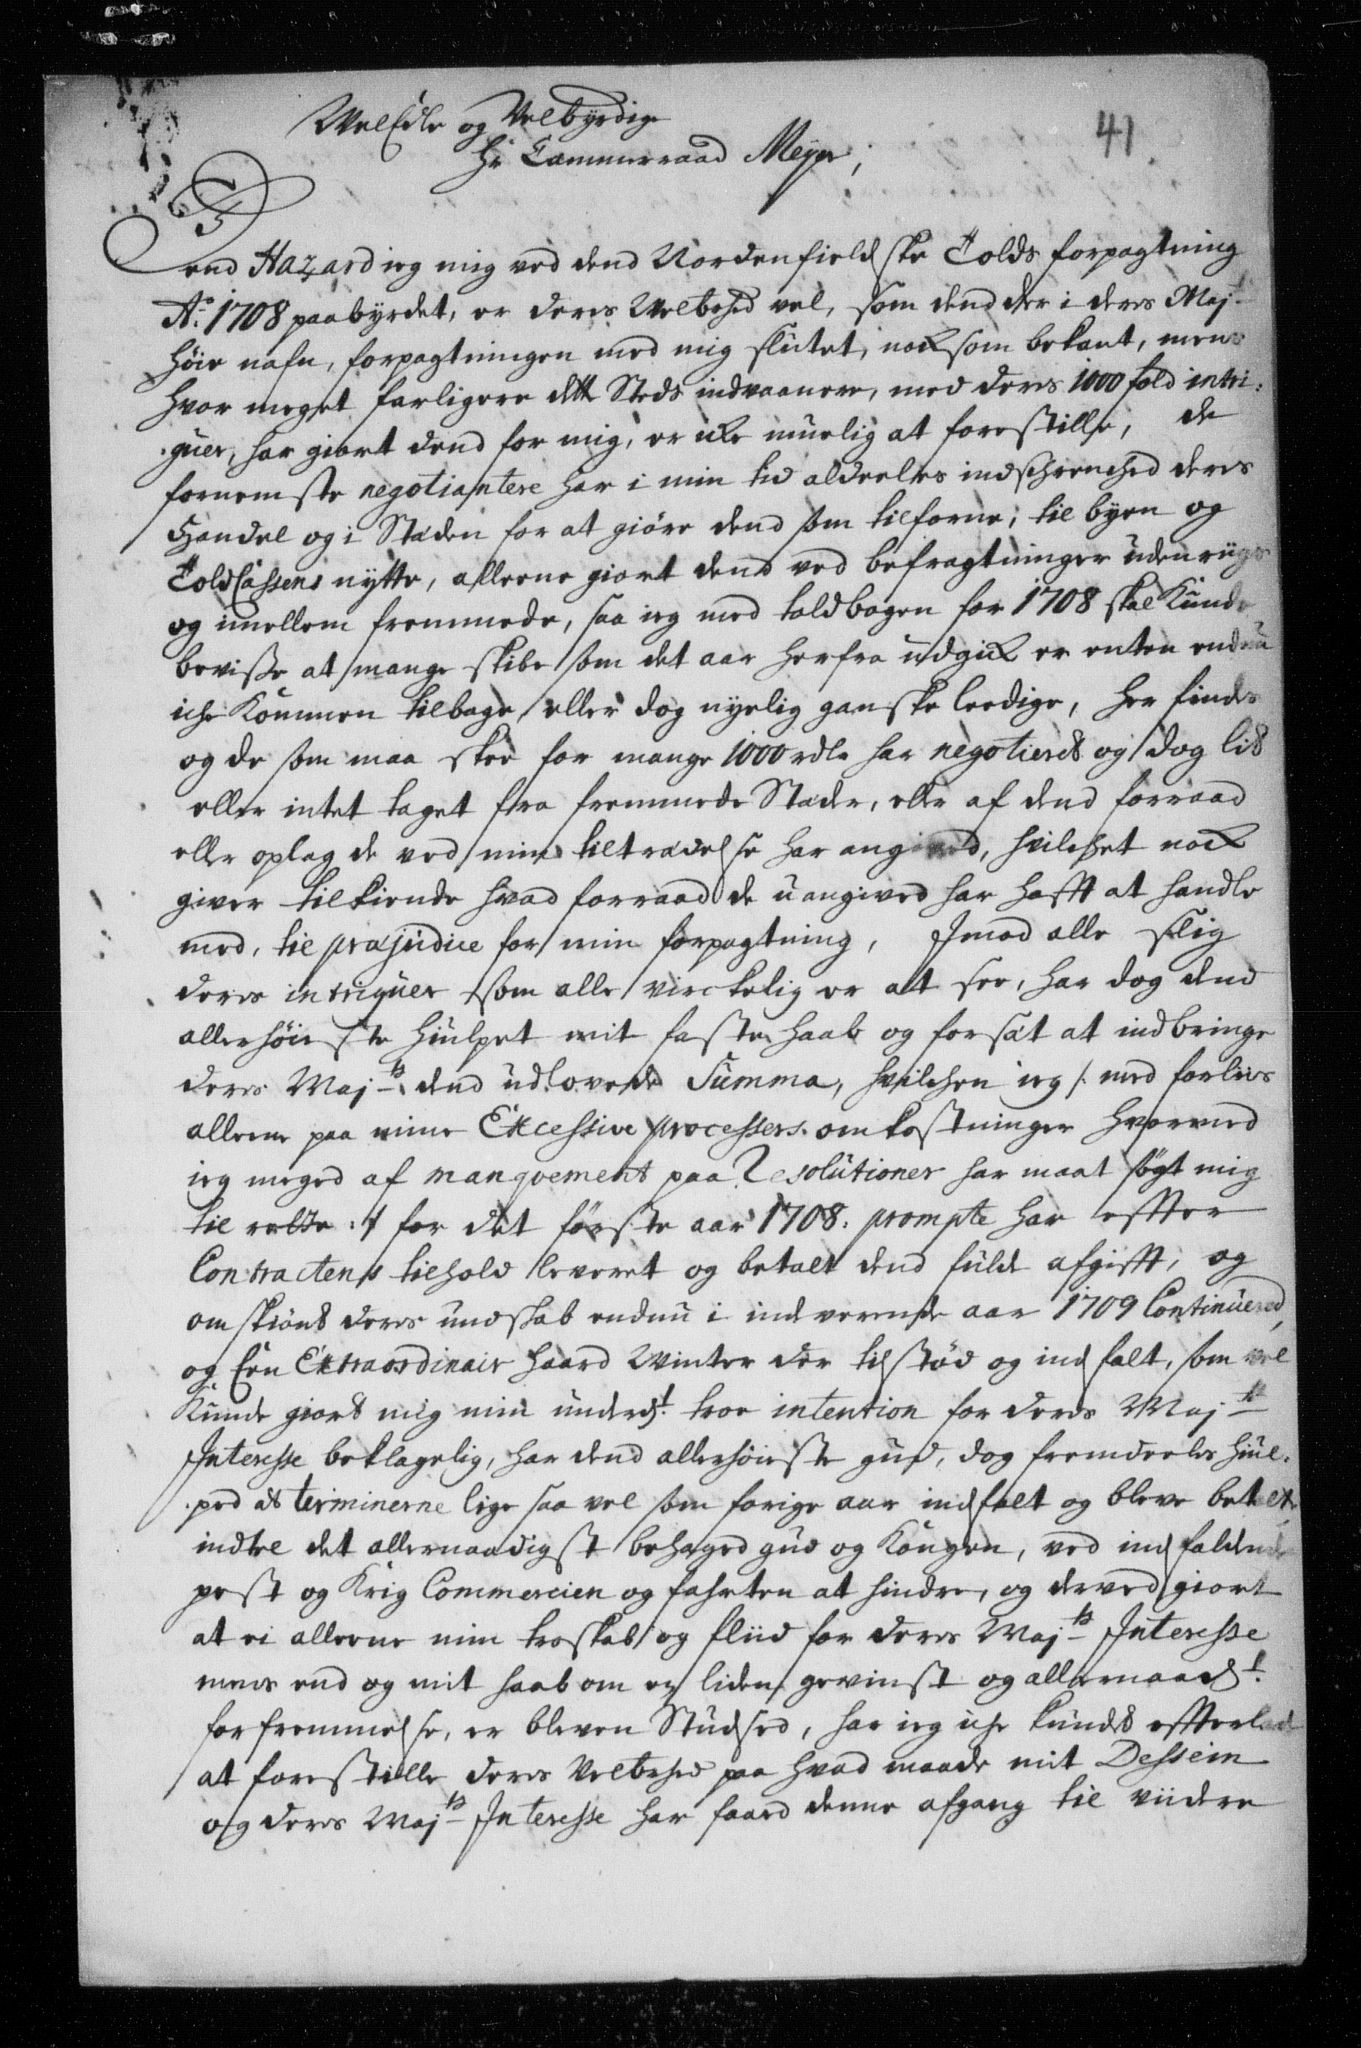 WelEdle og Velbyrdige
Hr Cammerraad Meyer,
41
Dend Hazard ieg mig ved dend Nordenfieldske Tolds forpagtning
Ao. 1708 paabyrdet, er deres Welbhed vel, som dend der i deres Majts
høie nafn, forpagtningen med mig slutet, nok som bekant, mens
hvor meget farligere dette Steds indvaanere, med deres 1000 fold intri:
:guer, har giort dend for mig, er icke muelig at forestille, de
fornemste negotiantere har i min tid aldeeles indschrenched deres
Handel og i Stæden for at giøre dend som tilforne, til byen og
ToldCassens nytte, alleene giort dend ved befragtninger udenriigs
og imellem fremmede, saa ieg med toldbogen for 1708 skal Kunde
bevisse at mange skibe som det aar herfra udgick er enten endnu
iche Kommen tilbage eller dog nyelig ganske leedige, her findes
og de som maa skee for mange 1000 rdlr har negotieret og dog lit
eller intet taget fra fremmede Stæder, eller af dend forraad
eller oplag de ved min tiltrædelse har angived, hvilchet nock
giver tilkiende hvad forraad de uangived har hafft at handle
med, til præjudice for min forpagtning, Imod alle slig
deres intriguer som alle virckelig er at see, har dog dend
allerhøieste hiulpet mit faste haab og forsæt at indbringe
deres Majts dend udlovede Summa, hvilchen ieg /: med forliis
alleene paa mine Excessive processers omkostninger hvorved
ieg meged af manqvement paa Resolutioner har maat søgt mig
til rette :/ for det første aar 1708. prompte har effter
Contractens tilhold leveret og betalt dend fulde afgifft, og
omskiønt deres undskab endnu i indverende aar 1709 Continuered,
og Een Extraordinair haard Winter der tilstød og indfalt, som vel
Kunde giort mig min underdt. troe intention for deres Majts
Interesse beklagelig, har dend allerhøieste gud, dog fremdeeles hiul:
:ped at terminerne lige saa vel som forige aar indfalt og bleve betalte
indtil det allernaadigst behaged gud og Kongen, ved indfaldende
pest og Krig Commercien og fahrten at hindre, og derved giort
at ei alleene min troskab og fliid for deres Majts Interesse
mens end og mit haab om en liden gevinst og allernaadt.
forfremmelse, er bleven Studsed, har ieg iche kundet effterlade
at forestille deres Velbhed paa hvad maade mit Dessein
og deres Majts Interesse har faaed denne afgang til viidere